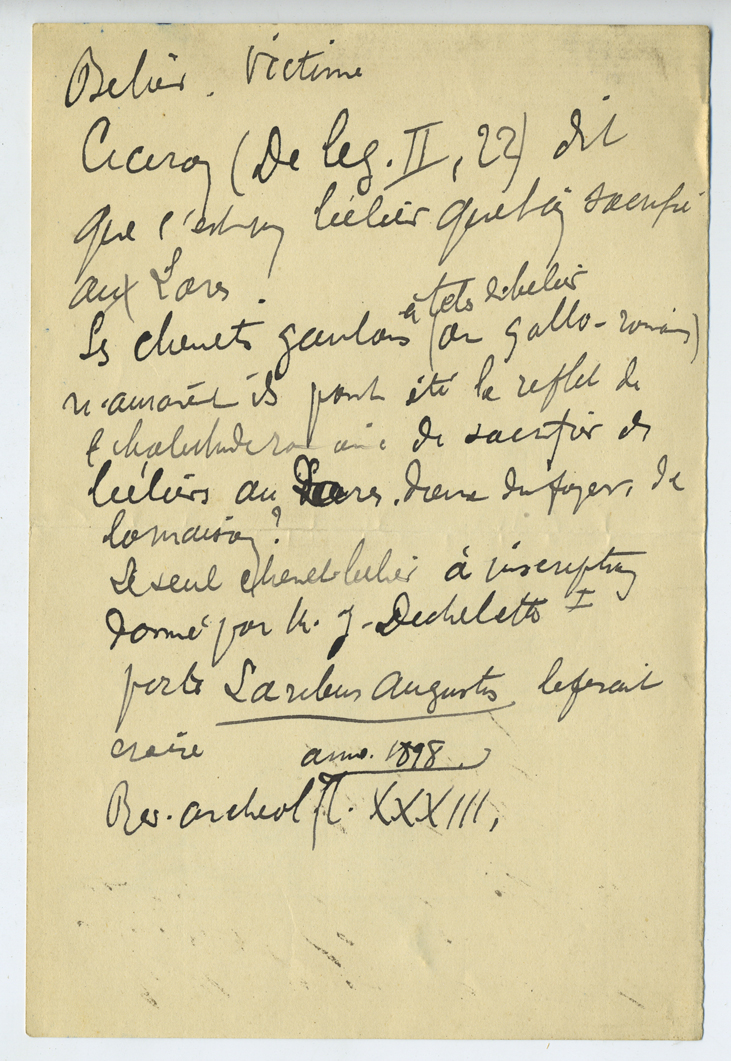 Belier. Victime
Ciceron (De leg. II, 22) dit
que c'est un bélier que l'on sacrifie
aux Lares.
à tete de belier
Les chenets gaulois (ou gallo-romains)
n'auraient ils point été le reflet de
l'habitude romaine de sacrifier des
béliers au Lares, dieux du foyer, de
la maison?
Le seul chenet-belier à inscription
donné par M. J. Dechelette I
porte Laribus Augustis le ferait
croire anno. 1898
Rev. archeol. Pl. XXXIII,